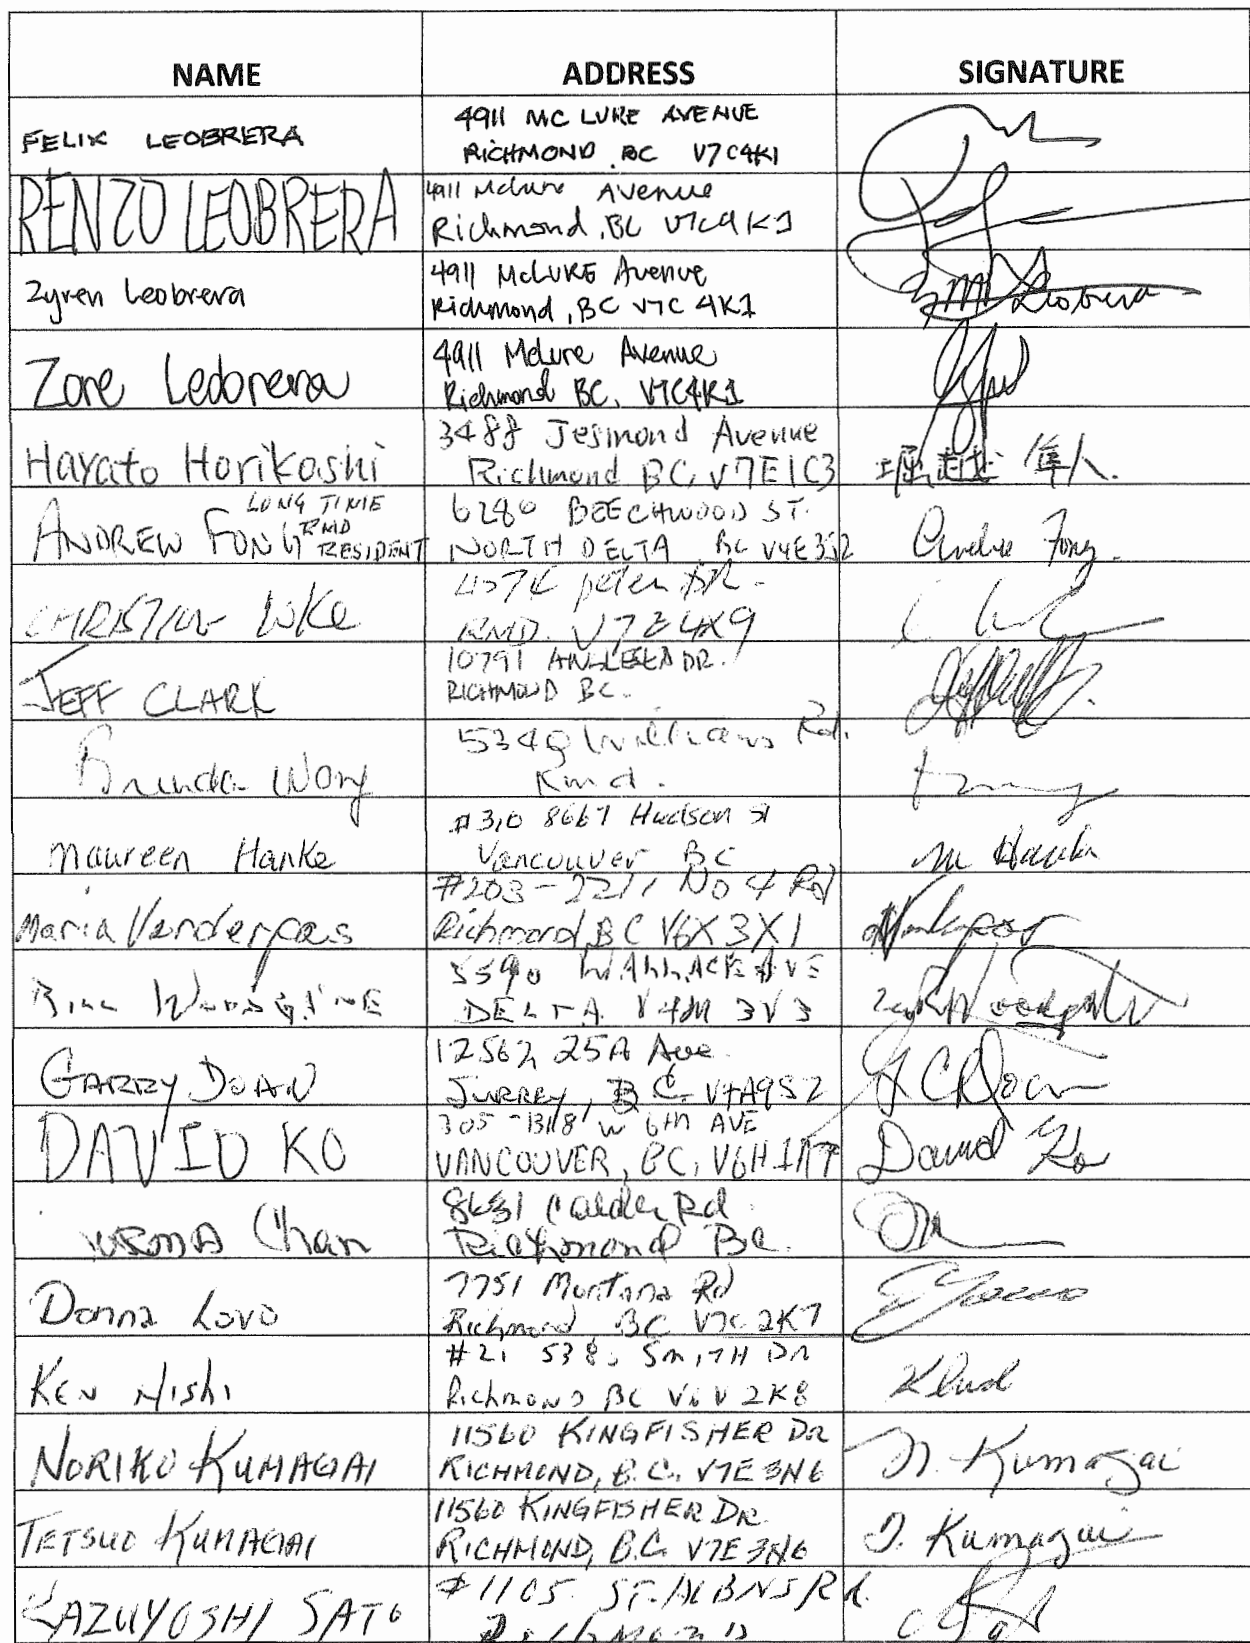 NAME ADDRESS SIGNATURE
FELIX LEOBRERA
4911 MC LURE AVENUE
RICHMOND BC V7C4K1
RENZO LEOBRERA
4911 McLure Avenue
Richmond, BC V7C4K1
Zyren Leobrera
4911 McLURE Avenue
Richmond, BC V7C 4K1
Leobrera
Zore Leobrera
4911 McLure Avenue
Richmond BC, V7C4K1
Hayato Horikoshi
3488 Jesmond Avenue
Richmond BC, V7E1C3
堀越 隼人
ANDREW FONG LONG TIME RMD RESIDENT
6280 BEECHWOOD ST.
NORTH DELTA BC
Andrew Fong.
LOKE
RMD. V7E4X9
JEFF CLARK
10791 DR.
RICHMOND BC.
Brenda Wong
Williams Rd.
Rmd.
Maureen Hanke
#310 8667 Hudson St
Vancouver BC
M Hanke
Maria Vanderpas
#203-2211 No 4 Rd
Richmond BC V6X3X1
5590 WALLACE AVE
DELTA V4M 3V3
GARRY DOAN
12562 25A Ave.
SURREY, B.C. V4A9S2
DAVID KO
W 6TH AVE
VANCOUVER, BC, V6H1A7
David Ko
Chan
8631 Calder Rd
Richmond BC.
Donna Lovo
7751 Montana Rd
Richmond, BC V7C 2K7
KEN NISHI
SMITH DR
Richmond BC V6V 2K8
NORIKO KUMAGAI
11560 KINGFISHER DR
RICHMOND, B.C. V7E 3N6
N. Kumagai
TETSUO KUMAGAI
11560 KINGFISHER DR.
RICHMOND, B.C. V7E 3N6
T. Kumagai
KAZUYOSHI SATO
#1105 ST. ALBANS Rd.